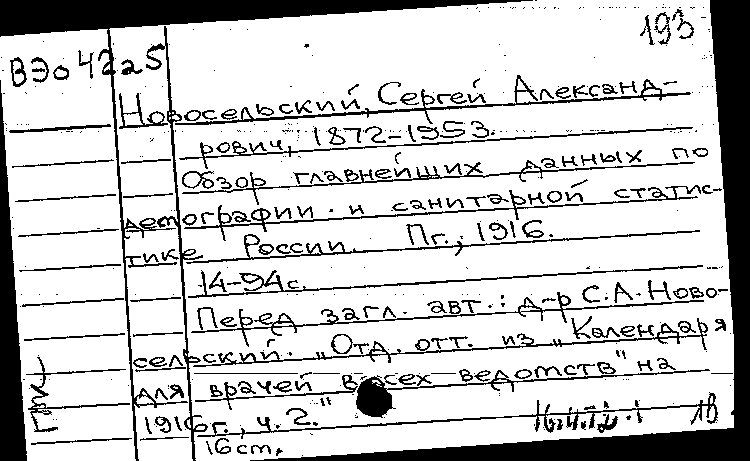 193
ВЭо 42а5
Новосельский, Сергей Александ-
рович, 1872-1953.
Обзор главнейших данных по
демографии и санитарной статис-
тике России. Пг., 1916.
14-94с.
Перед загл. авт.: д-р С.А. Ново-
сельский. „Отд. отт. из „Календаря
для врачей всех ведомств" на
1916г., ч. 2."
16 ст.
18